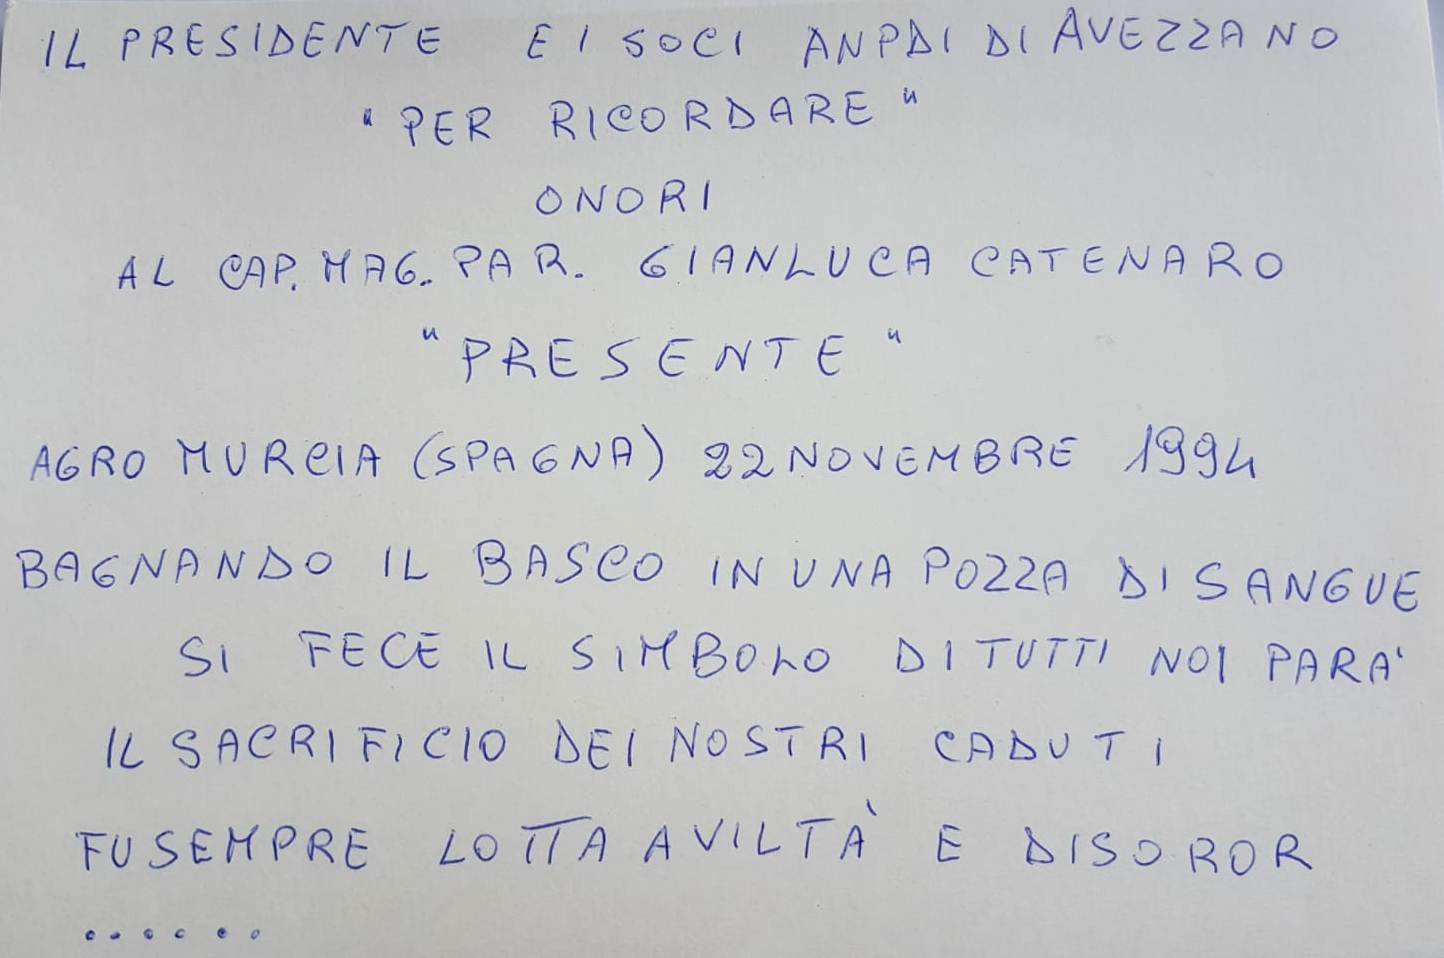 IL PRESIDENTE E I SOCI ANPDI DI AVEZZANO
"PER RICORDARE"
ONORI
AL CAP. MAG. PAR. GIANLUCA CATENARO
"PRESENTE"
AGRO MURCIA (SPAGNA) 22 NOVEMBRE 1994
BAGNANDO IL BASCO IN UNA POZZA DI SANGUE
SI FECE IL SIMBOLO DI TUTTI NOI PARA'
IL SACRIFICIO DEI NOSTRI CADUTI
FU SEMPRE LOTTA A VILTÀ E DISOROR
......